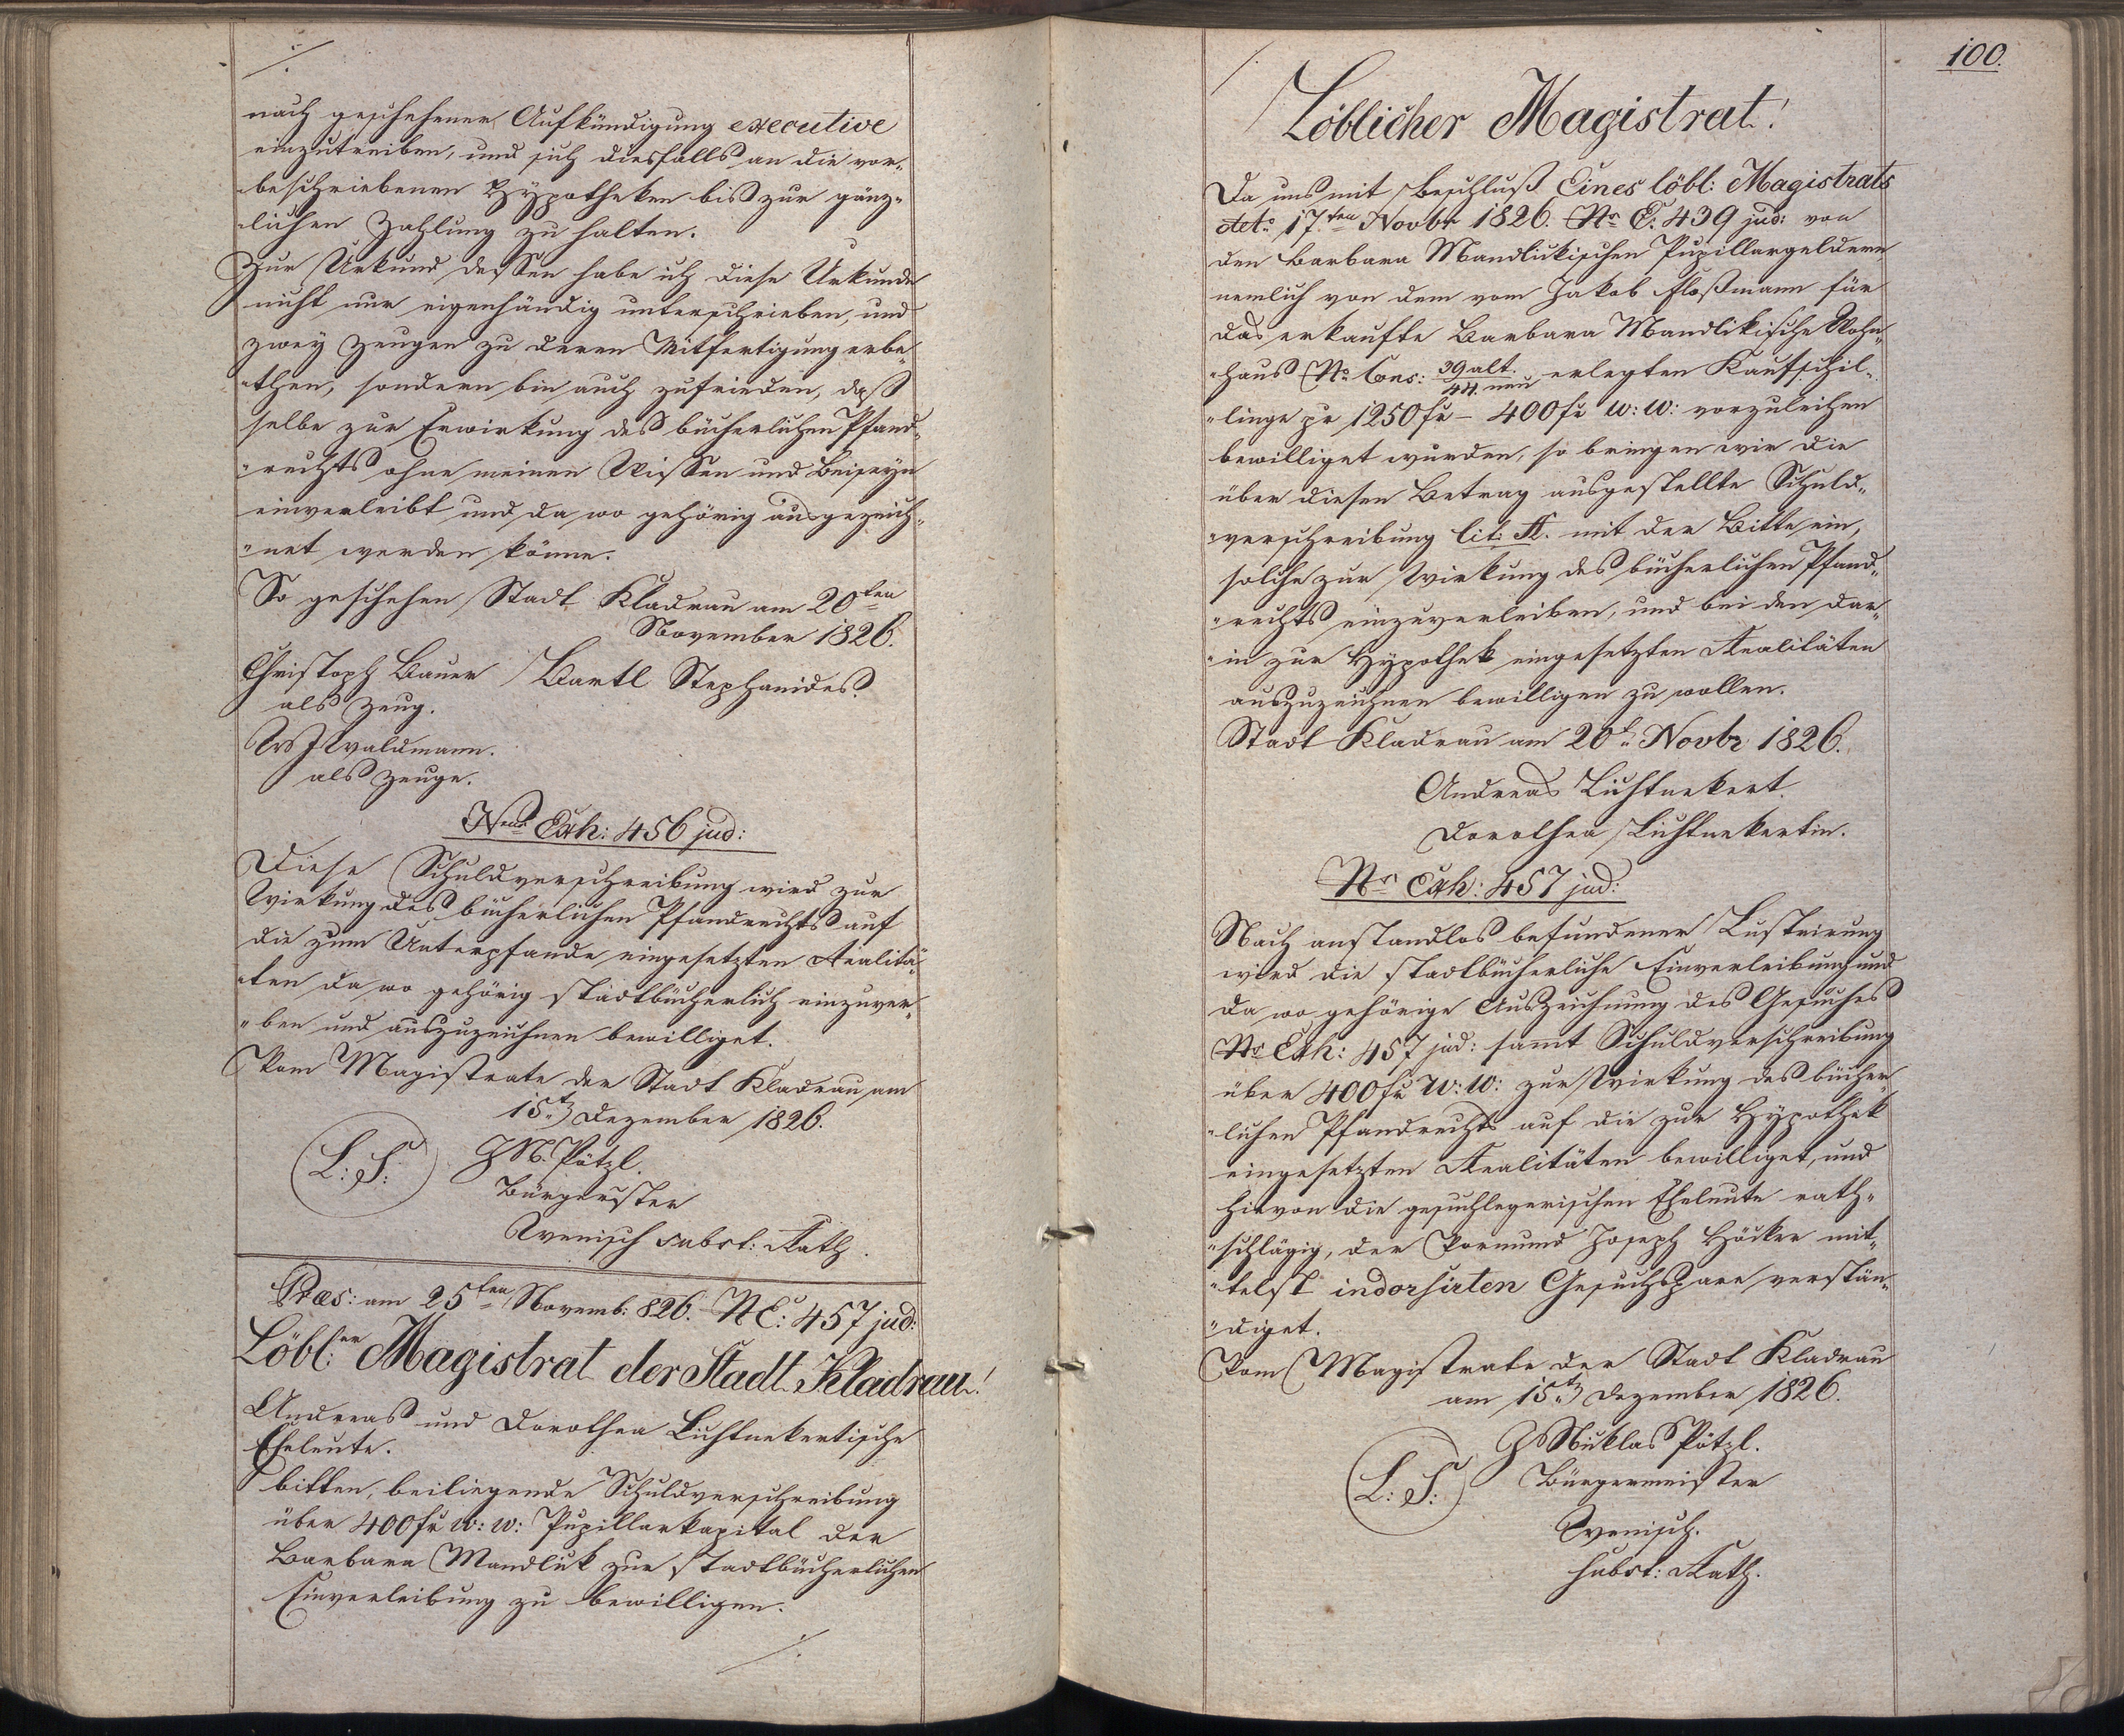 nach geschehener Aufkündigung executive
einzutreiben, und sich diesfalls an die vor„
„beschriebenen Hypotheken bis zur gänz„
„lichen Zahlung zu halten.
Zur Urkund dessen habe ich diese Urkunde
nicht nur eigenhändig unterschrieben, und
zwey Zeugen zu deren Mitfertigung erbe„
„then, sondern bin auch zufrieden, daß
selbe zur Erwirkung des bücherlichen Pfand„
„rechts ohne meinen Wissen und Beiseyn
einverleibt und da wo gehörig ausgezeich„
„net werden könne.
So geschehen Stadt Kladrau am 20ten
November 1826.
Christoph Bauer Bartl Stephanides.
als Zeug.
Waldmann.
als Zeuge.
Nrus Exh: 456 jud:
Diese Schuldverschreibung wird zur
Wirkung des bücherlichen Pfandrechts auf
die zum Unterpfande eingesetzten Realitä„
„ten da wo gehörig stadtbücherlich einzuver„
„ben und auszuzeichnen bewilliget.
Vom Magistrate der Stadt Kladrau am
15t Dezember 1826.
L: S: JN. Pötzl.
Bürgerster
Wenisch subst: Rath.
Præs: am 25ten Novemb: 826. NE: 457 jud:
Löbl:er Magistrat der Stadt Kladrau!
Andreas und Dorothea Lichtnekertische
Eheleute.
bitten, beiliegende Schuldverschreibung
über 400 fr w: w: Pupillarkapital der
Barbara Mandlik zur stadtbücherlichen
Einverleibung zu bewilligen.
./.
100.
Löblicher Magistrat!
Da uns mit Beschluß Eines löbl: Magistrats
deto 17ten Novbr 1826. Nr E: 439 jud: von
den Barbara Mandlikischen Pupillargeldern
nemlich von dem vom Jakob Floßmann für
das erkaufte Barbara Mandlikische Wohn„
„haus Nr Cons: 39 alt. / 44 neu erlegten Kaufschil„
„linge pr 1250 fr – 400 fr w: w: vorzuleihen
bewilliget wurden, so bringen wir die
über diesen Betrag ausgestellte Schuld„
„verschreibung lit: A. mit der Bitte ein,
solche zur Wirkung des bücherlichen Pfand„
„rechts einzuverleiben, und bei den dar„
„in zur Hypothek eingesetzten Realitäten
auszuzeichnen bewilligen zu wollen.
Stadt Kladrau am 20t Novbr 1826.
Andreas Lichtnekert.
Dorothea Lichtnekertin.
Nr Exh: 457 jud:
Nach anstandlos befundener Lustrirung
wird die stadtbücherliche Einverleibung und
da wo gehörige Auszeichnung des Gesuches
Nr Exh: 457 jud: sammt Schuldverschreibung
über 400 fr W: W: zur Wirkung des bücher„
„lichen Pfandrechts auf die zur Hypothek
eingesetzten Realitäten bewilliget, und
hievon die gesuchlegerischen Eheleute rath„
„schlägig, der Vormund Joseph Höcker mit„
„telst indorsirten Gesuchspare verstän„
„diget.
Vom Magistrate der Stadt Kladrau
am 15t Dezember 1826.
L: S: J Niklas Pötzl.
Bürgermeister
Wenisch.
subst: Rath.